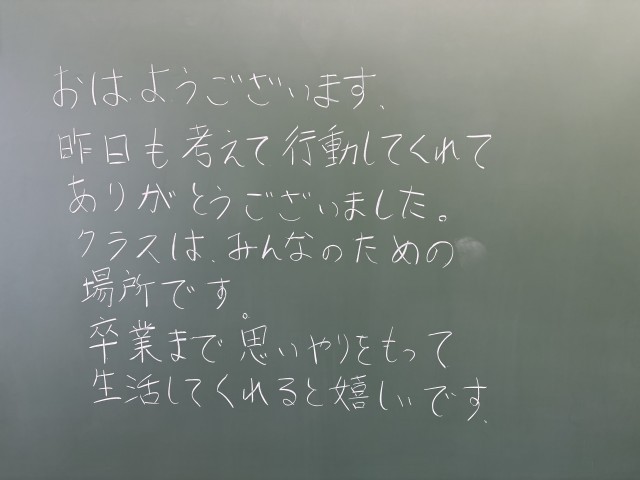 おはようございます、
昨日も考えて行動してくれて
ありがとうございました。
クラスは、みんなのための
場所です。
卒業まで思いやりをもって
生活してくれると嬉しいです.